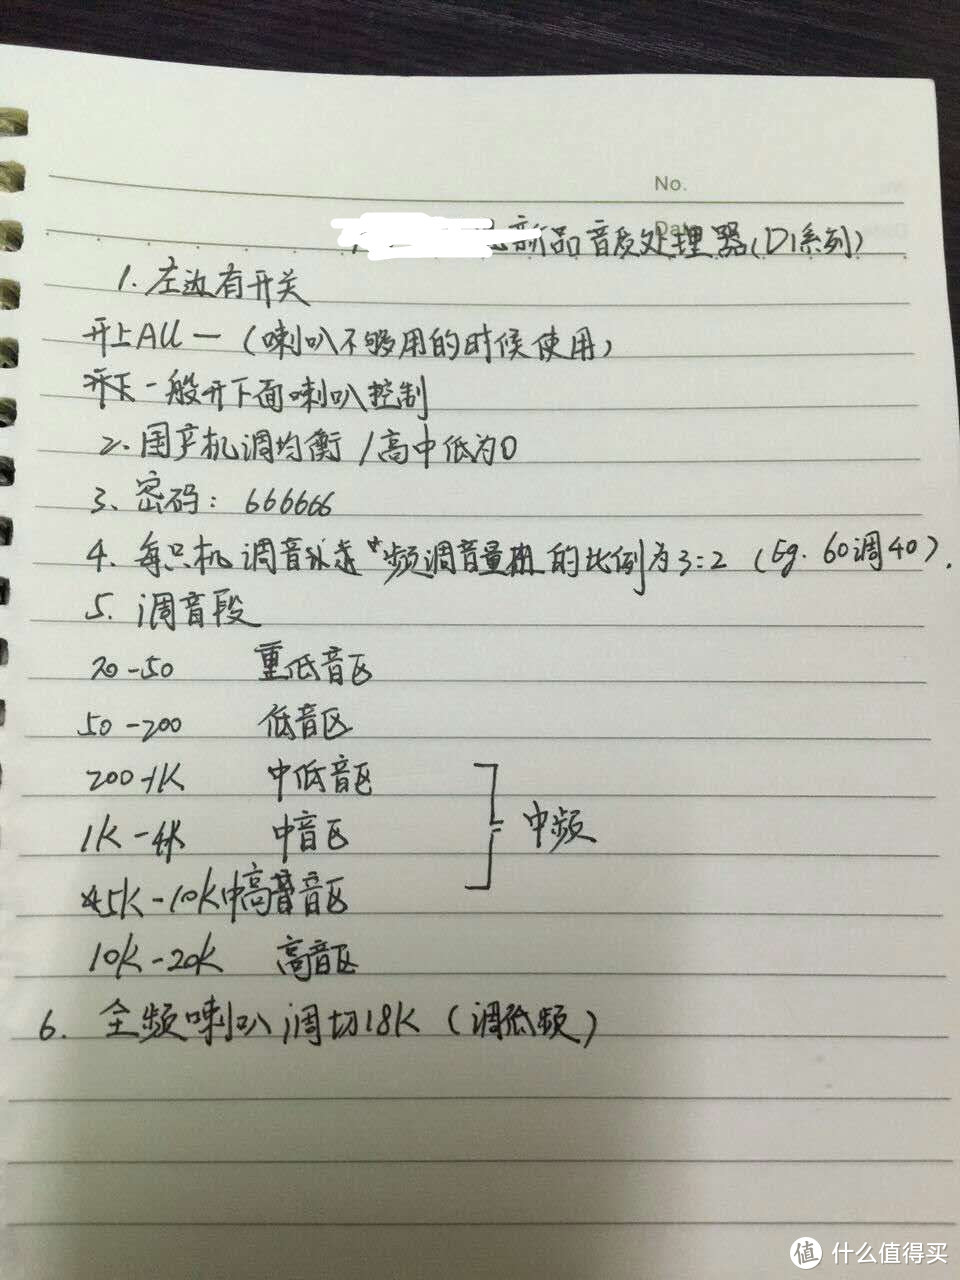 No.
Date
新品音质处理器(D1系列)
1. 左边有开关
开上All一 (喇叭不够用的时候使用)
开下一般开下面喇叭控制
2. 国产机调均衡 / 高中低为0
3、密码: 666666
4、每只机调音 频调音量 的比例为3:2 (Eg. 60调40).
5. 调音段
20-50 重低音区
50-200 低音区
200-1K 中低音区
1K-4K 中音区
中频
45K-10K中高音区
10K-20K 高音区
6. 全频喇叭调切18K (调低频)
值 什么值得买